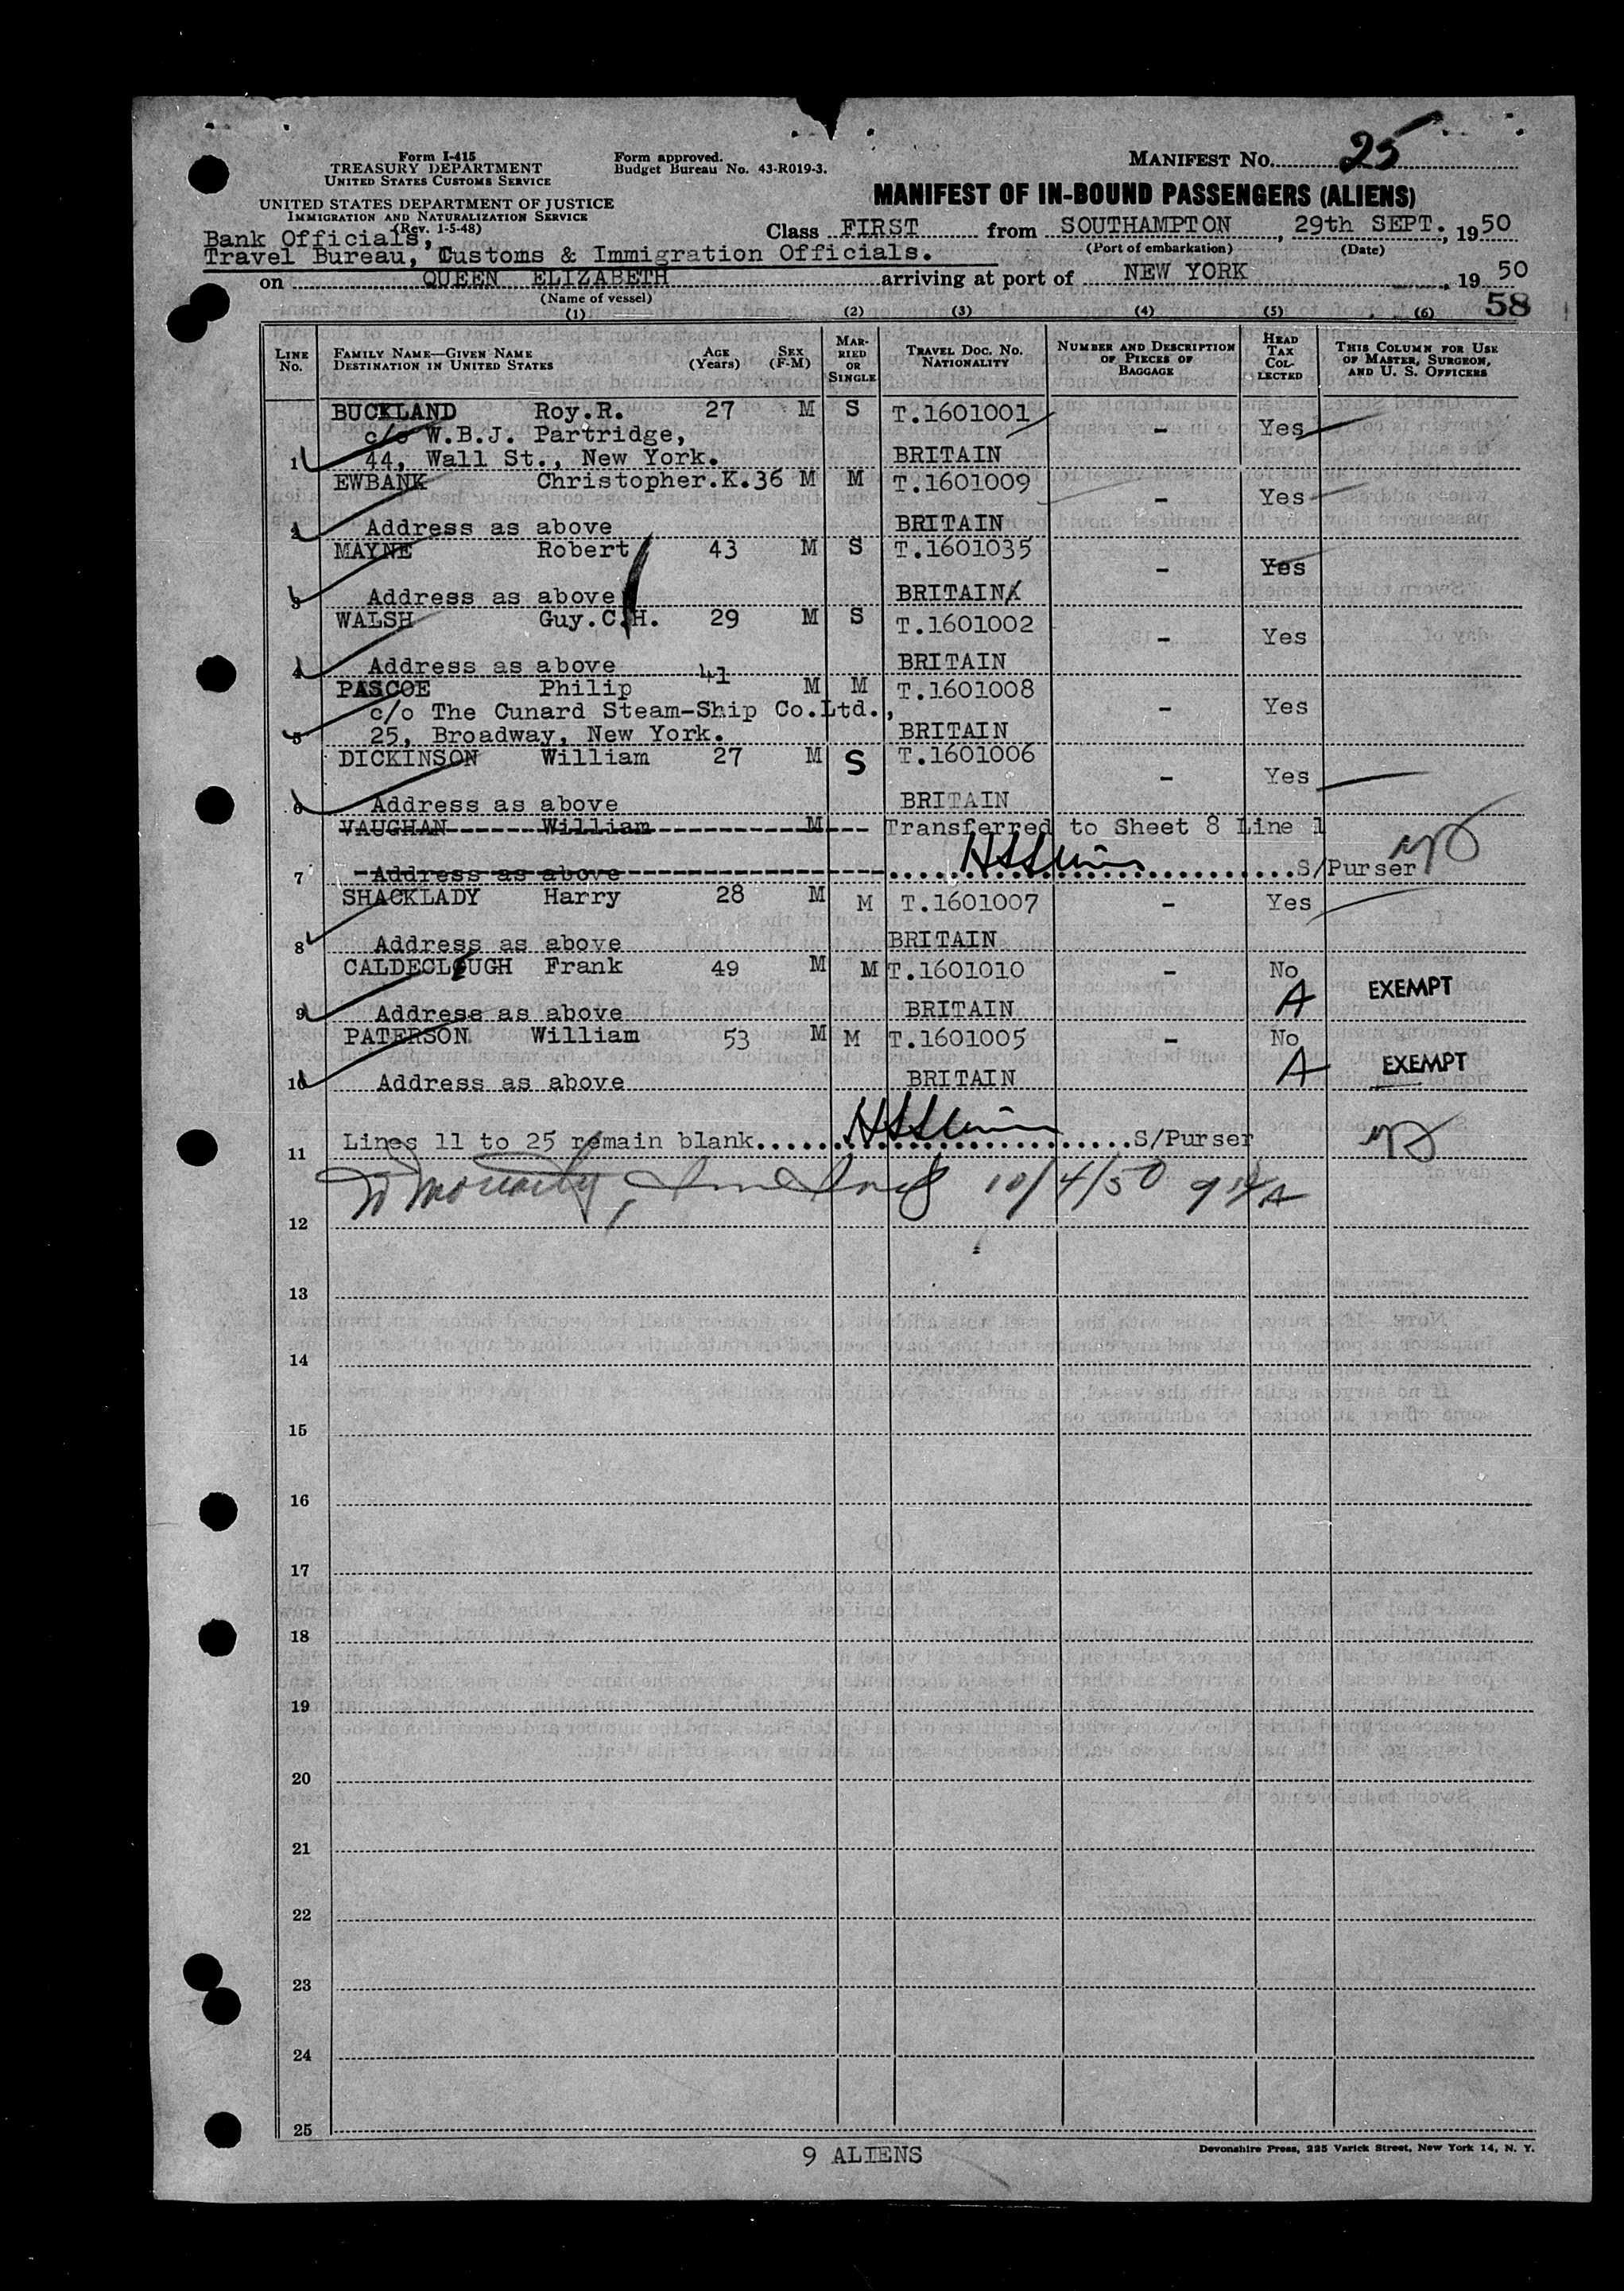 Form I-415
TREASURY DEPARTMENT
UNITED STATES CUSTOMS SERVICE
UNITED STATES DEPARTMENT OF JUSTICE
IMMIGRATION AND NATURALIZATION SERVICE
(Rev. 1-5-48)
Form approved.
Budget Bureau No. 43-R019-3.
MANIFEST No. 25
MANIFEST OF IN-BOUND PASSENGERS (ALIENS)
Bank Officials,
Travel Bureau, Customs & Immigration Officials.
Class FIRST from SOUTHAMPTON, 29th SEPT., 1950
(Port of embarkation) (Date)
on QUEEN ELIZABETH arriving at port of NEW YORK, 1950
(Name of vessel)
58
(1) (2) (3) (4) (5) (6)
LINE No. FAMILY NAME—GIVEN NAME DESTINATION IN UNITED STATES AGE (Years) SEX (F-M) MARRIED OR SINGLE TRAVEL DOC. No. NATIONALITY NUMBER AND DESCRIPTION OF PIECES OF BAGGAGE HEAD TAX COLLECTED THIS COLUMN FOR USE OF MASTER, SURGEON, AND U. S. OFFICERS
BUCKLAND Roy.R. 27 M S T.1601001 - Yes
c/o W.B.J. Partridge,
1 44, Wall St., New York. BRITAIN
EWBANK Christopher.K. 36 M M T.1601009 - Yes
2 Address as above BRITAIN
MAYNE Robert 43 M S T.1601035 - Yes
3 Address as above BRITAIN
WALSH Guy.C.H. 29 M S T.1601002 - Yes
4 Address as above BRITAIN
PASCOE Philip 41 M M T.1601008 - Yes
c/o The Cunard Steam-Ship Co.Ltd.,
5 25, Broadway, New York. BRITAIN
DICKINSON William 27 M S T.1601006 - Yes
6 Address as above BRITAIN
VAUGHAN William M Transferred to Sheet 8 Line 1
7 Address as above S/Purser
SHACKLADY Harry 28 M M T.1601007 - Yes
8 Address as above BRITAIN
CALDECLOUGH Frank 49 M M T.1601010 - No
9 Address as above BRITAIN A EXEMPT
PATERSON William 53 M M T.1601005 - No
10 Address as above BRITAIN A EXEMPT
11 Lines 11 to 25 remain blank S/Purser
10/4/50
12
13
14
15
16
17
18
19
20
21
22
23
24
25
9 ALIENS
Devonshire Press, 225 Varick Street, New York 14, N. Y.